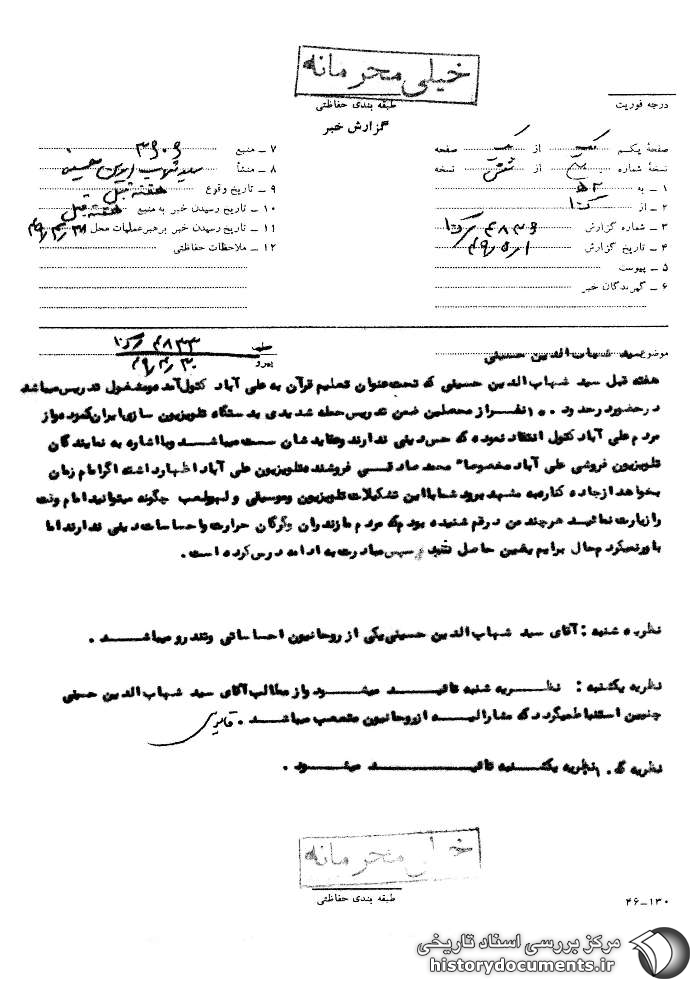 خیلی محرمانه
طبقه بندی حفاظتی
درجه فوریت
گزارش خبر
صفحهٔ یکم یک از یک صفحه
نسخهٔ شماره از شش نسخه
۱ ـ به
۲ ـ از
۳ ـ شماره گزارش
۴ ـ تاریخ گزارش
۵ ـ پیوست
۶ ـ گیرندگان خبر
۷ ـ منبع
۸ ـ منشأ سید شهاب الدین حسینی
۹ ـ تاریخ وقوع هفته قبل
۱۰ ـ تاریخ رسیدن خبر به منبع هفته قبل
۱۱ ـ تاریخ رسیدن خبر برهبر عملیات محل
۱۲ ـ ملاحظات حفاظتی
موضوع سید شهاب الدین حسینی
پیرو
هفته قبل سید شهاب الدین حسینی که تحت عنوان تعلیم قرآن به علی آباد کتول آمده و مشغول تدریس میباشد
در حضور حدود ۱۰۰ نفر از محصلین ضمن تدریس حمله شدیدی به دستگاه تلویزیون سازی ایران نموده و از
مردم علی آباد کتول انتقاد نموده که حس دینی ندارند و عقایدشان سست میباشد و با اشاره به نمایندگان
تلویزیون فروشی علی آباد مخصوصاً محمد صادقی فروشنده تلویزیون علی آباد اظهار داشته اگر امام زمان
بخواهد از جاده کناره به مشهد برود شما با این تشکیلات تلویزیون و موسیقی و لهو لعب چگونه میتوانید امام وقت
را زیارت نمائید هر چند من در قم شنیده بودم که مردم مازندران و گرگان حرارت و احساسات دینی ندارند اما
باور نمیکردم حال برایم یقین حاصل شد و سپس مبادرت به ادامه درس کرده است .
نظریه شنبه : آقای سید شهاب الدین حسینی یکی از روحانیون احساساتی و تندرو میباشد .
نظریه یکشنبه : نظریه شنبه تائید میشود و از مطالب آقای سید شهاب الدین حسینی
چنین استنباط میگردد که مشارالیه از روحانیون متعصب میباشد .
نظریه گ . نظریه یکشنبه تائید میشود .
خیلی محرمانه
طبقه بندی حفاظتی
۴۶ـ۱۳۰
مرکز بررسی اسناد تاریخی
historydocuments.ir